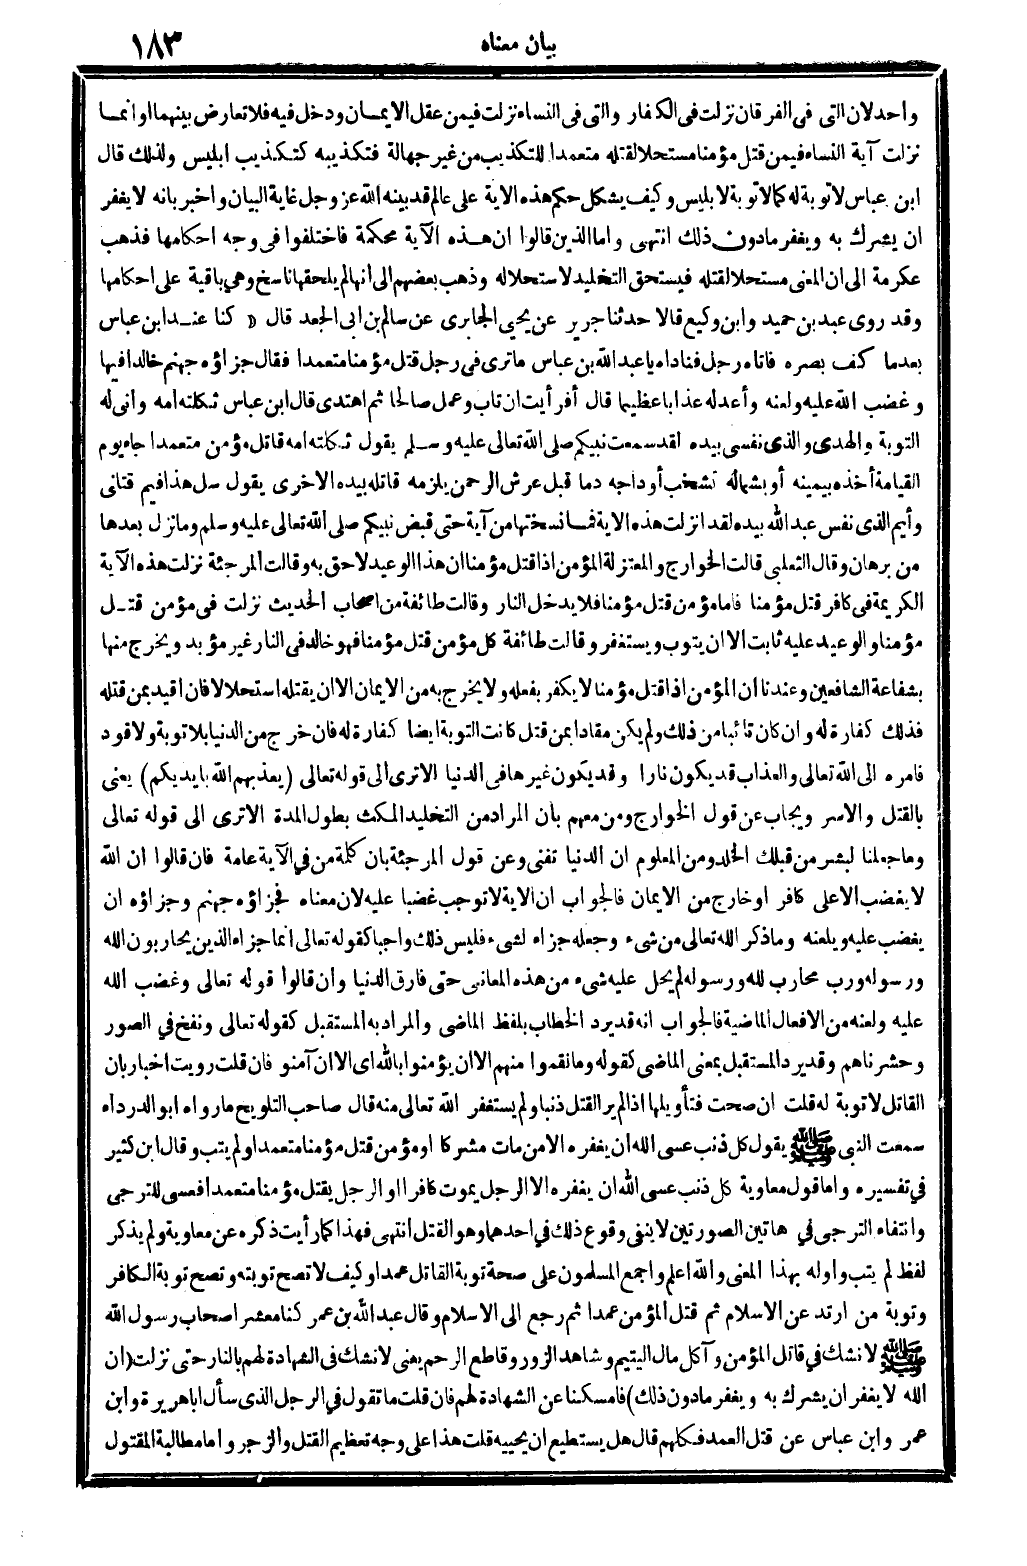 بيان معناه ١٨٣
واحد لان التى فى الفرقان نزلت فى الكفار والتى فى النساء نزلت فيمن عقل الايمان ودخل فيه فلا تعارض بينهما او انما
نزلت آية النساء فيمن قتل مؤمنا مستحلا لقتله متعمدا للتكذيب من غير جهالة فتكذيبه كتكذيب ابليس ولذلك قال
ابن عباس لا توبة له كما لا توبة لابليس وكيف يشكل حكم هذه الاية على عالم قد بينه الله عز وجل غاية البيان واخبر بانه لا يغفر
ان يشرك به ويغفر مادون ذلك انتهى واما الذين قالوا ان هذه الآية محكمة فاختلفوا فى وجه احكامها فذهب
عكرمة الى ان المعنى مستحلا لقتله فيستحق التخليد لاستحلاله وذهب بعضهم الى أنها لم يلحقها ناسخ وهى باقية على احكامها
وقد روى عبد بن حميد وابن وكيع قالا حدثنا جرير عن يحيى الجابرى عن سالم بن ابى الجعد قال « كنا عند ابن عباس
بعدما كف بصره فاتاه رجل فناداه يا عبد الله بن عباس ماترى فى رجل قتل مؤمنا متعمدا فقال جزاؤه جهنم خالدا فيها
وغضب الله عليه ولعنه وأعد له عذابا عظيما قال أفرأيت ان تاب وعمل صالحا ثم اهتدى قال ابن عباس ثكلته امه وأنى له
التوبة والهدى والذى نفسى بيده لقد سمعت نبيكم صلى الله تعالى عليه وسلم يقول ثكلته امه قاتل مؤمن متعمدا جاء يوم
القيامة أخذه بيمينه أو بشماله تشخب أوداجه دما قبل عرش الرحمن يلزمه قاتله بيده الاخرى يقول سل هذا فيم قتلنى
وأيم الذى نفس عبد الله بيده لقد انزلت هذه الاية فما نسختها من آية حتى قبض نبيكم صلى الله تعالى عليه وسلم وما نزل بعدها
من برهان وقال الثعلبى قالت الخوارج والمعتزلة المؤمن اذا قتل مؤمنا ان هذا الوعيد لاحق به وقالت المرجئة نزلت هذه الآية
الكريمة فى كافر قتل مؤمنا فاما مؤمن قتل مؤمنا فلا يدخل النار وقالت طائفة من اصحاب الحديث نزلت فى مؤمن قتل
مؤمنا والوعيد عليه ثابت الا ان يتوب ويستغفر وقالت طائفة كل مؤمن قتل مؤمنا فهو خالد فى النار غير مؤبد ويخرج منها
بشفاعة الشافعين وعندنا ان المؤمن اذا قتل مؤمنا لا يكفر بفعله ولا يخرج به من الايمان الا ان يقتله استحلالا فان اقيد بمن قتله
فذلك كفارة له وان كان تائبا من ذلك ولم يكن مقادا بمن قتل كانت التوبة ايضا كفارة له فان خرج من الدنيا بلا توبة ولا قود
فامره الى الله تعالى والعذاب قد يكون نارا وقد يكون غيرها فى الدنيا الا ترى الى قوله تعالى (يعذبهم الله بايديكم) يعنى
بالقتل والاسر ويجاب عن قول الخوارج ومن معهم بان المراد من التخليد المكث بطول المدة الا ترى الى قوله تعالى
وما جعلنا لبشر من قبلك الخلد ومن المعلوم ان الدنيا تفنى وعن قول المرجئة بان كلمة من في الآية عامة فان قالوا ان الله
لا يغضب الا على كافر او خارج من الايمان فالجواب ان الاية لا توجب غضبا عليه لان معناه فجزاؤه جهنم وجزاؤه ان
يغضب عليه ويلعنه وما ذكر الله تعالى من شىء وجعله جزاء لشىء فليس ذلك واجبا كقوله تعالى انما جزاء الذين يحاربون الله
ورسوله ورب محارب لله ورسوله لم يحل عليه شىء من هذه المعانى حتى فارق الدنيا وان قالوا قوله تعالى وغضب الله
عليه ولعنه من الافعال الماضية فالجواب انه قد يرد الخطاب بلفظ الماضى والمراد به المستقبل كقوله تعالى ونفخ في الصور
وحشرناهم وقد يرد المستقبل بمعنى الماضى كقوله وما نقموا منهم الا ان يؤمنوا بالله اى الا ان آمنو فان قلت رويت اخبار بان
القاتل لا توبة له قلت ان صحت فتأويلها اذا لم ير القتل ذنبا ولم يستغفر الله تعالى منه قال صاحب التلويح ما رواه ابو الدرداء
سمعت النبى ﷺ يقول كل ذنب عسى الله أن يغفره الا من مات مشركا او مؤمن قتل مؤمنا متعمدا ولم يتب وقال ابن كثير
في تفسيره واما قول معاوية كل ذنب عسى الله ان يغفره الا الرجل يموت كافرا او الرجل يقتل مؤمنا متعمدا فعسى للترجى
وانتفاء الترجى في هاتين الصورتين لا ينفى وقوع ذلك في احدهما وهو القتل انتهى فهذا كما رأيت ذكره عن معاوية ولم يذكر
لفظ لم يتب واوله بهذا المعنى والله اعلم واجمع المسلمون على صحة توبة القاتل عمدا وكيف لا تصح توبته وتصح توبة الكافر
وتوبة من ارتد عن الاسلام ثم قتل المؤمن عمدا ثم رجع الى الاسلام وقال عبد الله بن عمر كنا معشر اصحاب رسول الله
ﷺ لا نشك في قاتل المؤمن وآكل مال اليتيم وشاهد الزور وقاطع الرحم يعنى لا نشك فى الشهادة لهم بالنار حتى نزلت (ان
الله لا يغفر ان يشرك به ويغفر مادون ذلك) فامسكنا عن الشهادة لهم فان قلت ما تقول في الرجل الذى سأل ابا هريرة وابن
عمر وابن عباس عن قتل العمد فكلهم قال هل يستطيع ان يحييه قلت هذا على وجه تعظيم القتل والزجر واما مطالبة المقتول